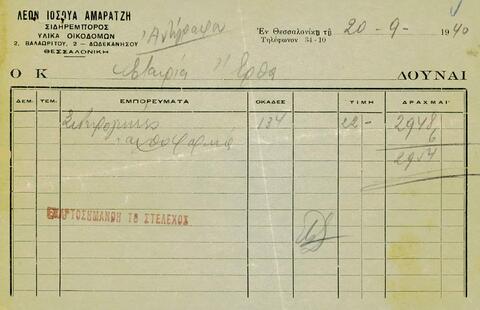 ΛΕΩΝ ΙΟΣΟΥΑ ΑΜΑΡΑΤΖΗ
ΣΙΔΗΡΕΜΠΟΡΟΣ
ΥΛΙΚΑ ΟΙΚΟΔΟΜΩΝ
2, ΒΑΛΑΩΡΙΤΟΥ, 2 – ΔΩΔΕΚΑΝΗΣΟΥ
ΘΕΣΣΑΛΟΝΙΚΗ
Ἀντίγραφον
Ἐν Θεσσαλονίκῃ τῇ 20-9-1940
Τηλέφωνον 34-10
Ο Κ Εταιρία "Ερθα ΔΟΥΝΑΙ
ΔΕΜ. ΤΕΜ. ΕΜΠΟΡΕΥΜΑΤΑ ΟΚΑΔΕΣ ΤΙΜΗ ΔΡΑΧΜΑΙ
134 22- 2948
6
2954
ΕΧΑΡΤΟΣΗΜΑΝΘΗ ΤΟ ΣΤΕΛΕΧΟΣ